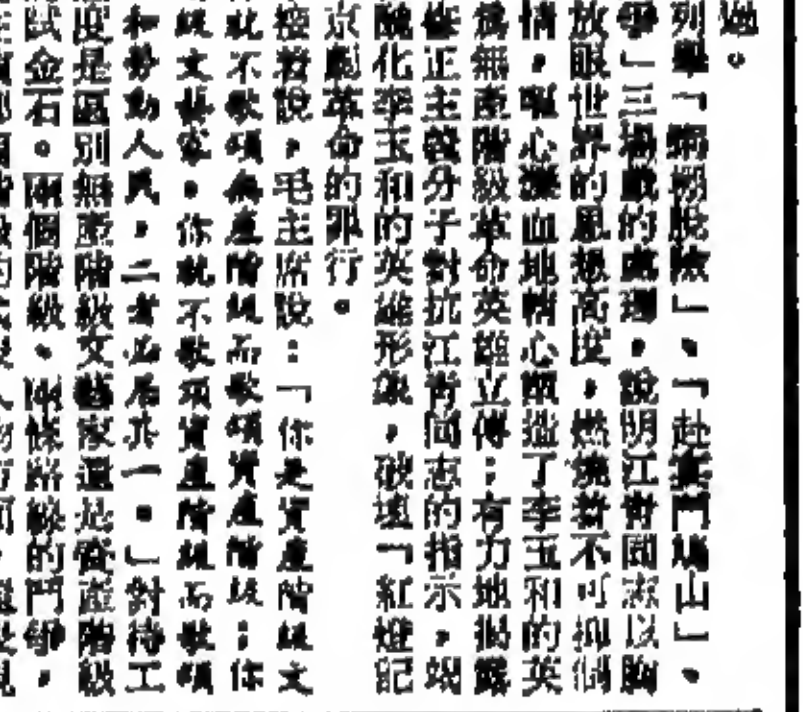 過。
列舉「粥棚脫險」、「赴宴鬥鳩山」、
爭」三場戲的處理,說明江青同志以胸
放眼世界的思想高度,燃燒着不可抑制
情,嘔心瀝血地精心塑造了李玉和的英
為無產階級革命英雄立傳;有力地揭露
修正主義分子對抗江青同志的指示,竭
醜化李玉和的英雄形象,破壞「紅燈記
京劇革命的罪行。
接着說,毛主席說:「你是資產階級文
你就不歌頌無產階級而歌頌資產階級;你
階級文藝家,你就不歌頌資產階級而歌頌
和勞動人民,二者必居其一。」對待工
度是區別無產階級文藝家還是資產階級
試金石。兩個階級、兩條路線的鬥爭,